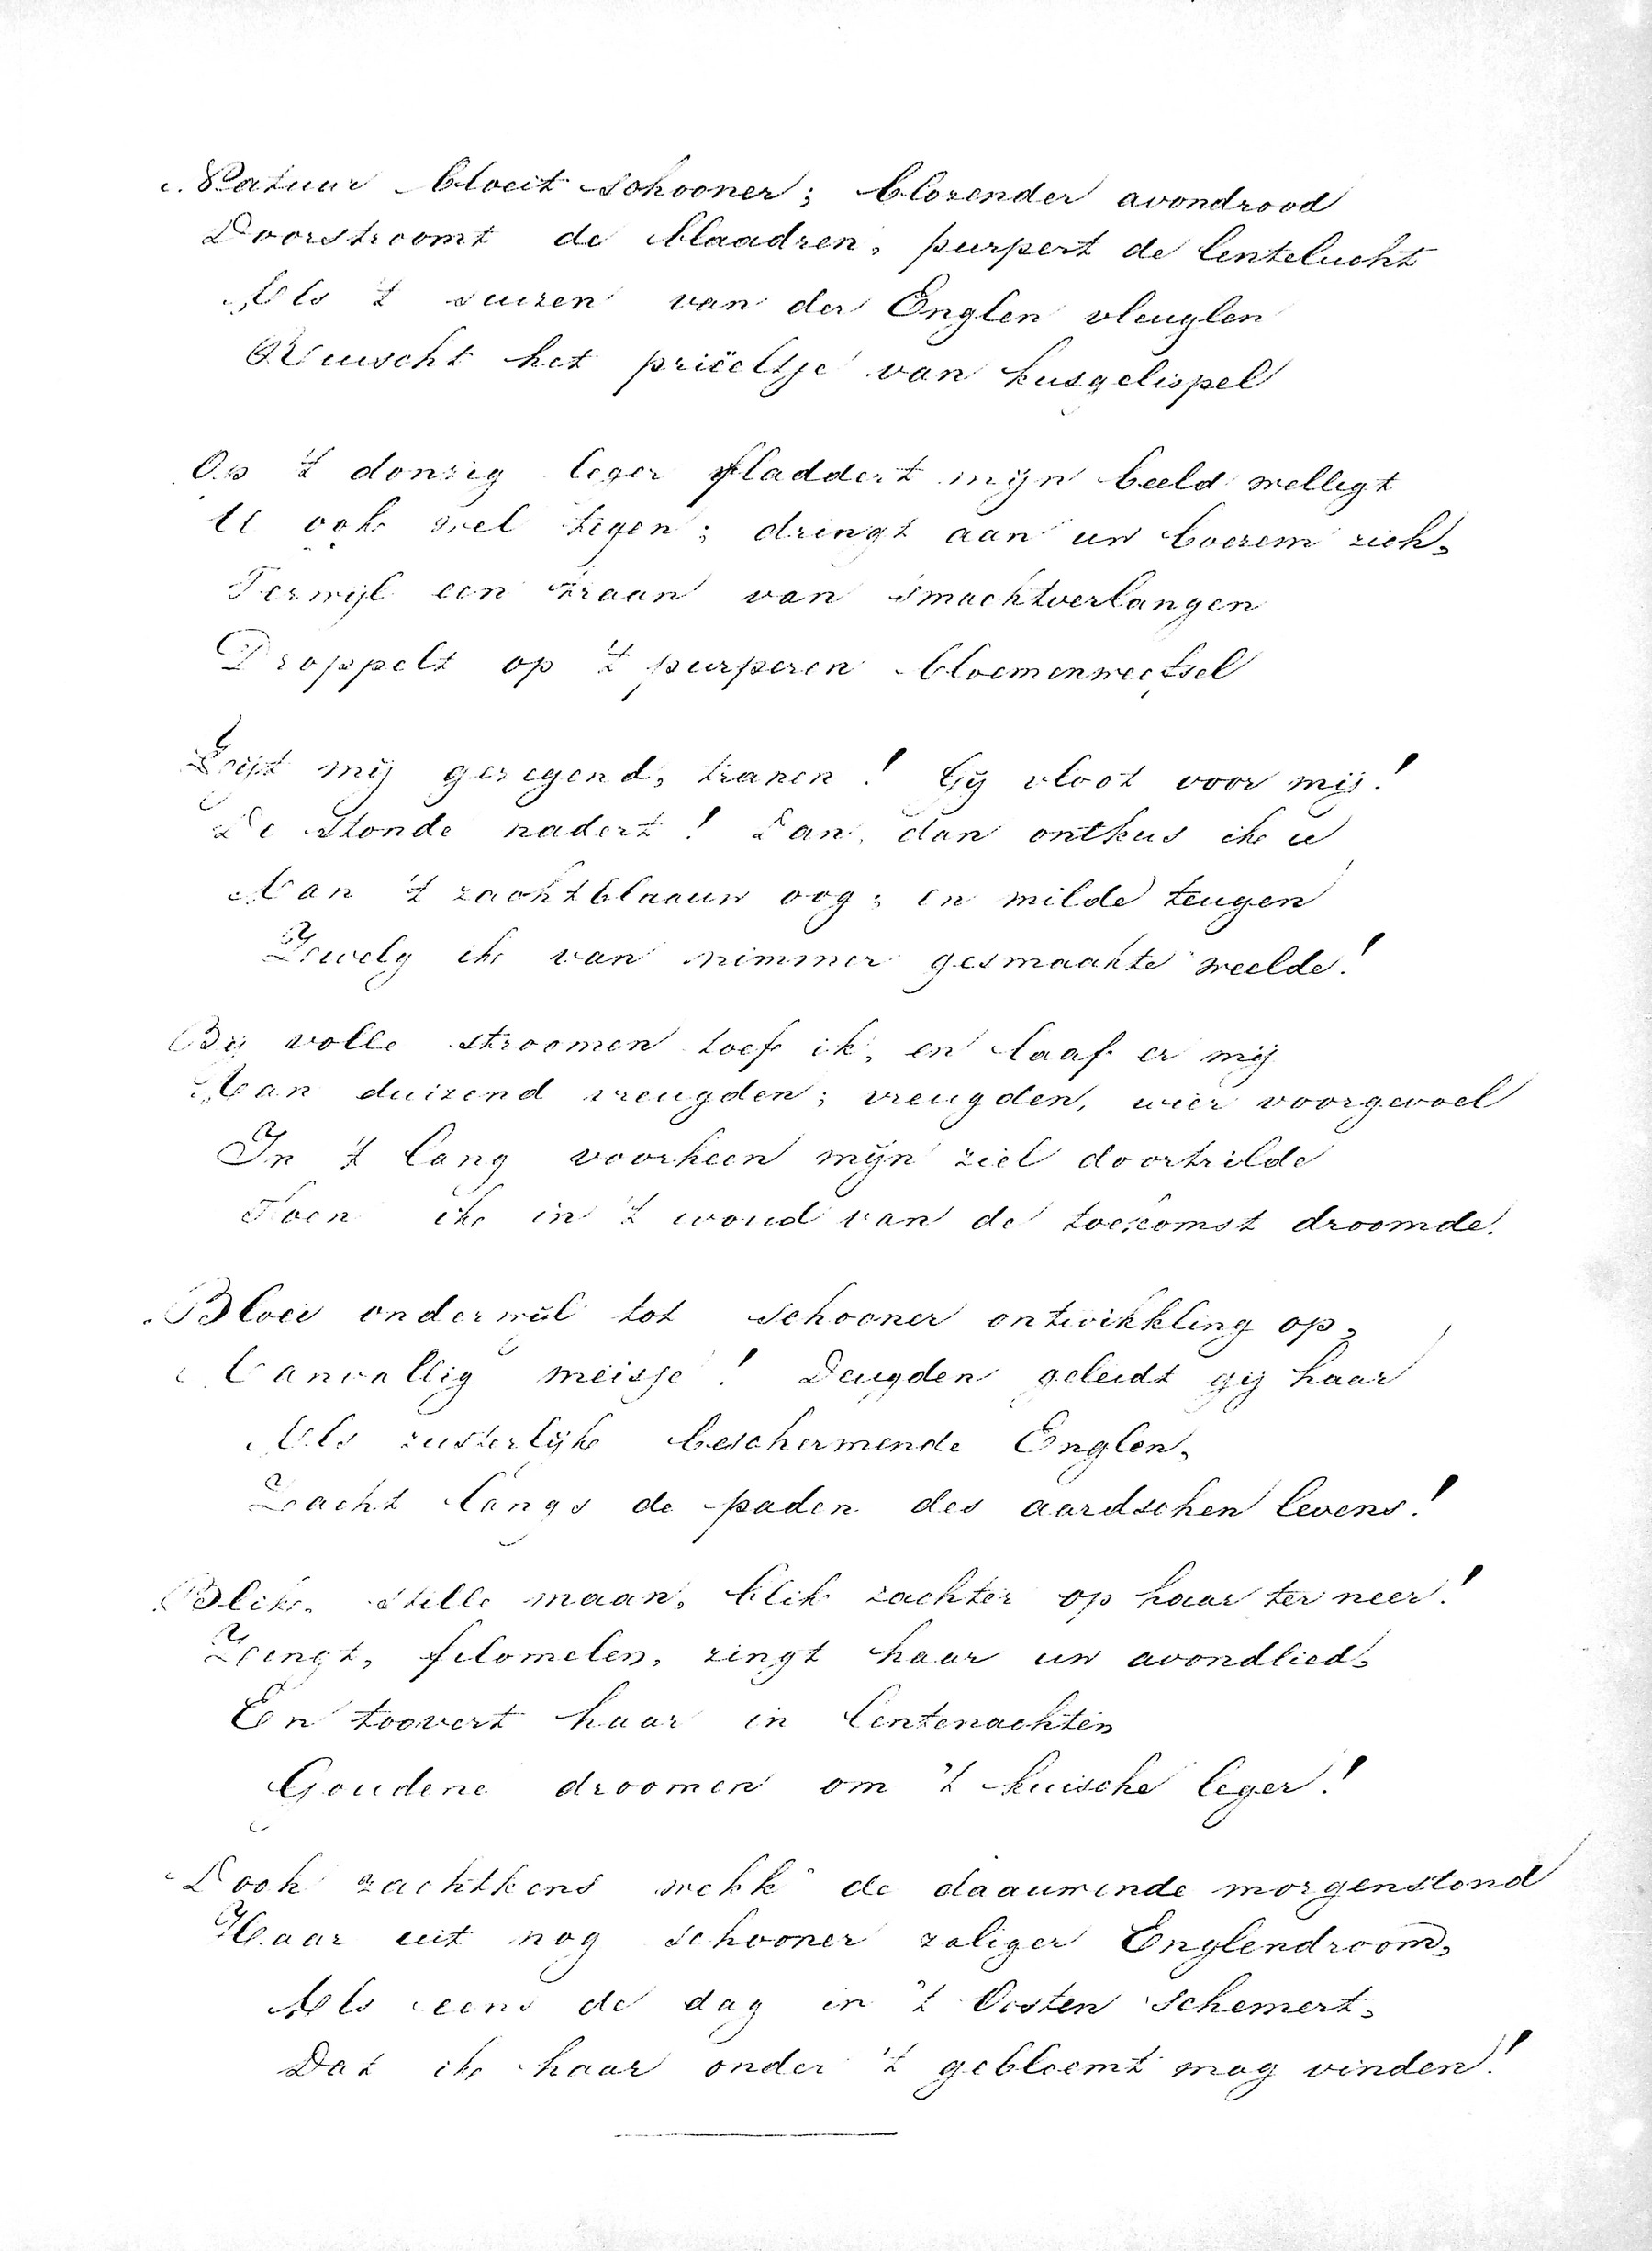 Natuur bloeit schooner; blozender avondrood
Doorstroomt de blaadren, purpert de lentelucht
Als 't suizen van der Englen vleuglen
Ruischt het priëeltje van kusgelispel
Op 't donzig leger fladdert mijn beeld welligt
U ook wel tegen; dringt aan uw boezem zich,
Terwijl een traan van smachtverlangen
Droppelt op 't purperen bloemenweefsel
Zijt mij gezegend, tranen! Gij vloot voor mij!
De stonde nadert! Dan, dan ontkus ik u
Aan 't zachtblaauw oog; en milde teugen
Zwelg ik van nimmer gesmaakte weelde!
Bij volle stroomen toef ik, en laaf er mij
Aan duizend vreugden; vreugden, wier voorgevoel
In 't lang voorheen mijn ziel doortrilde
Toen ik in 't woud van de toekomst droomde.
Bloei onderwijl tot schooner ontwikkling op,
Aanvallig meisje! Deugden geleidt gij haar
Als zusterlijke beschermende Englen,
Zacht langs de paden des aardschen levens!
Blik, stille maan, blik zachter op haar ter neer!
Zingt, filomelen, zingt haar uw avondlied,
En toovert haar in lentenachten
Goudene droomen om 't kuische leger!
Doch zachtkens wekk' de daauwende morgenstond
Haar uit nog schooner zaliger Englendroom,
Als eens de dag in 't Oosten schemert,
Dat ik haar onder 't gebloemt mag vinden!